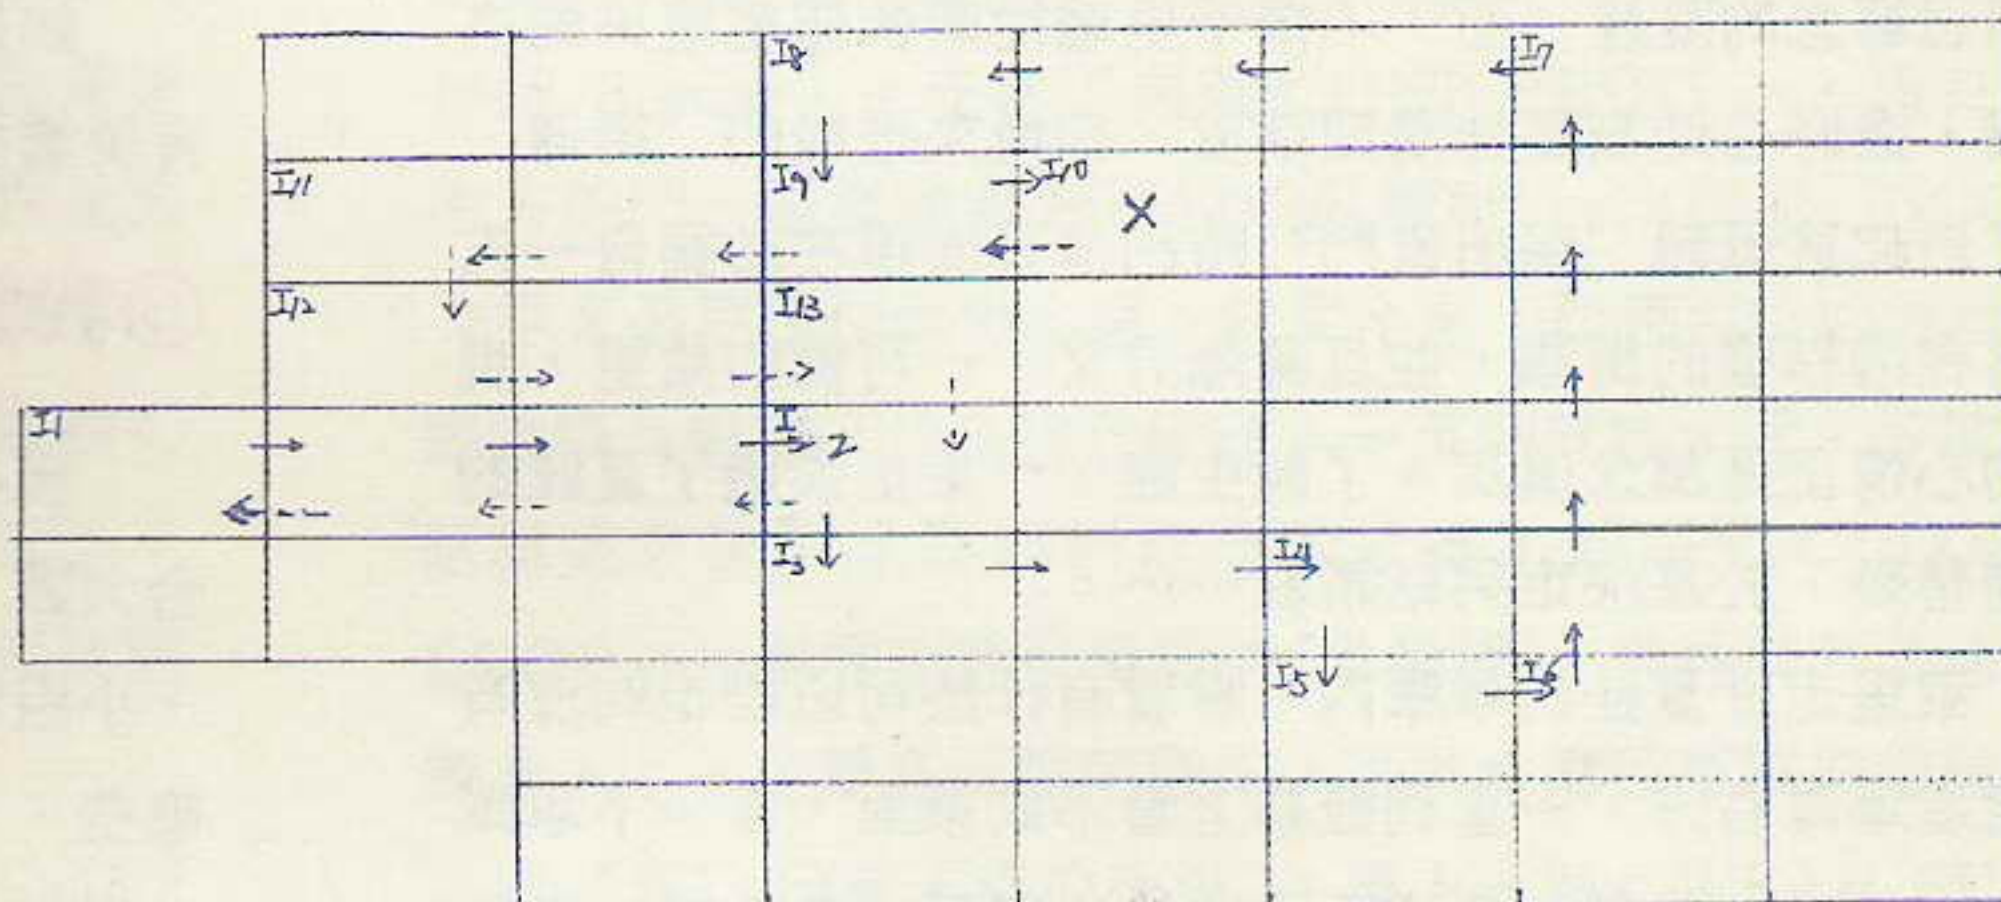 I8
I7
I11
I9
I10
X
I12
I13
I1
I2
I3
I4
I5
I6